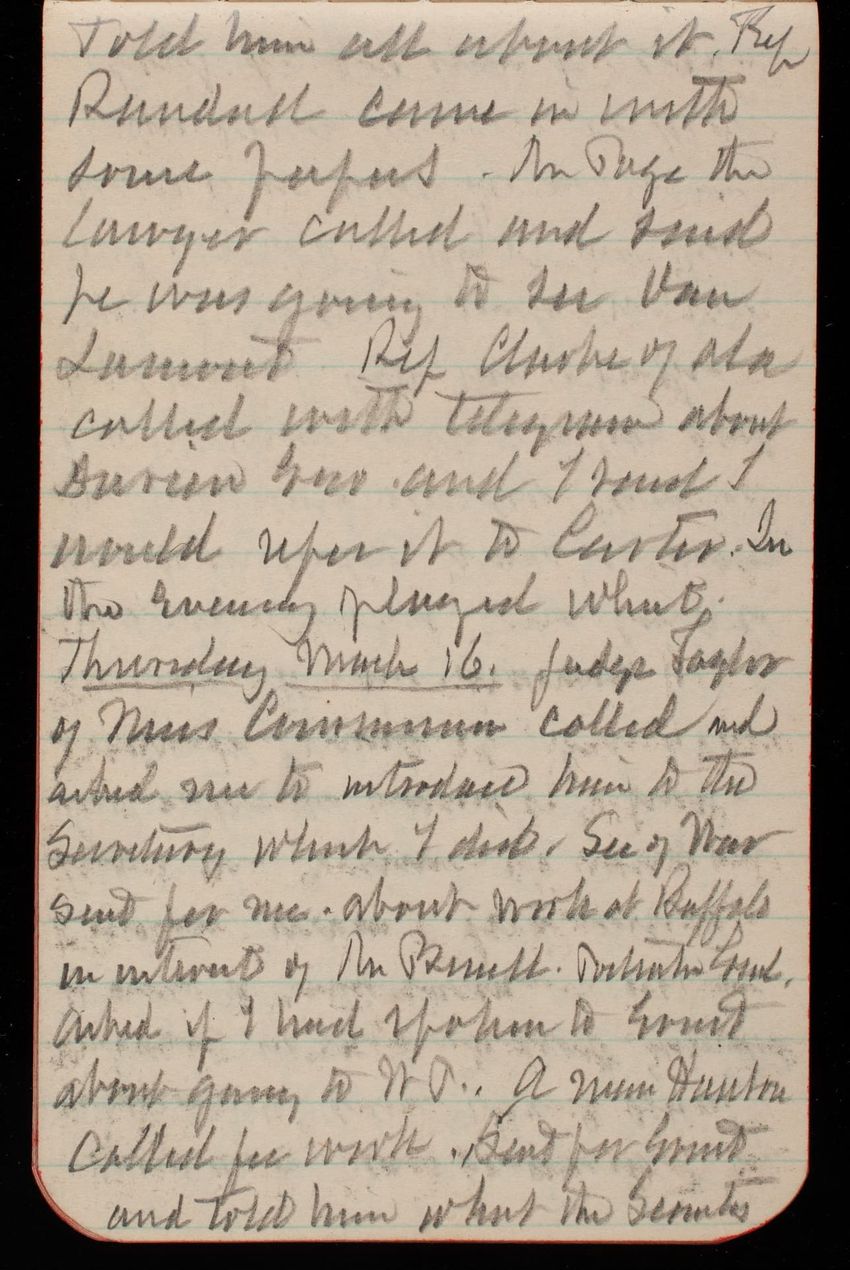 Told him all about it. Rep
Randall came in with
some papers. Mr Page the
lawyer called and said
he was going to see Dan
Lamont Rep Clarke of Ala
called with telegram about
and I said I
would refer it to Casey. In
the evening played whist.
Thursday March 16. Judge Taylor
of Miss Commission called and
asked me to introduce him to the
Secretary which I did. Sec of War
sent for me. about work at Buffalo
in interest of Mr
asked if I had spoken to Grant
about going to W.P.. A man
called for work. Sent for Grant
and told him what the Secretary